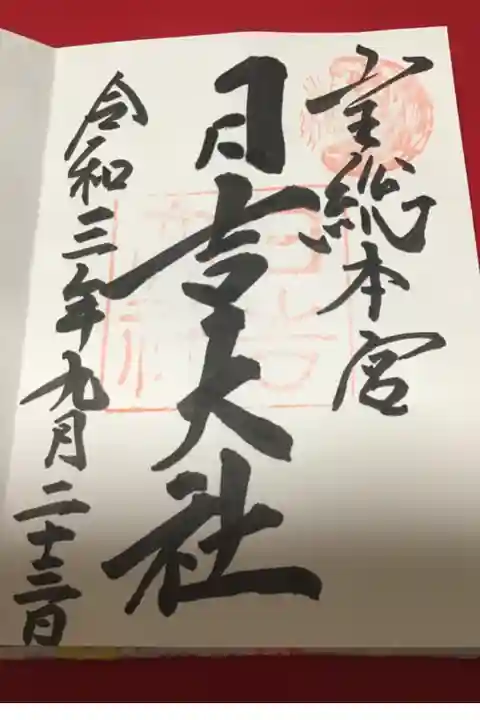 山王総本宮
日吉大社
令和三年九月二十三日